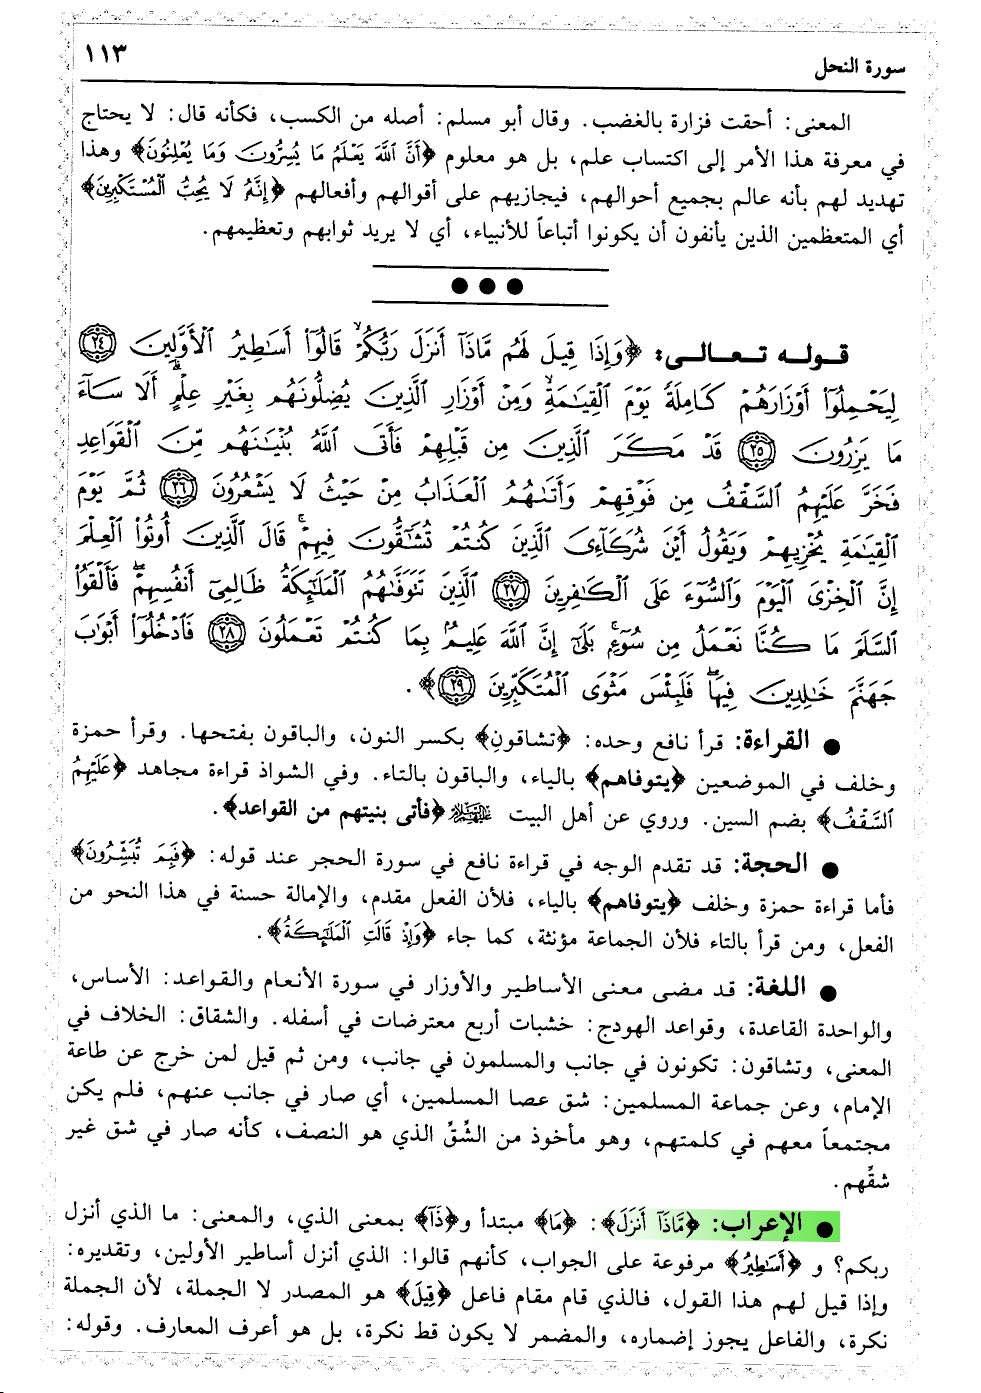 سورة النحل ١١٣
المعنى: أحقت فزارة بالغضب. وقال أبو مسلم: أصله من الكسب، فكأنه قال: لا يحتاج
في معرفة هذا الأمر إلى اكتساب علم، بل هو معلوم ﴿أَنَّ اللَّهَ يَعْلَمُ مَا يُسِرُّونَ وَمَا يُعْلِنُونَ﴾ وهذا
تهديد لهم بأنه عالم بجميع أحوالهم، فيجازيهم على أقوالهم وأفعالهم ﴿إِنَّهُ لَا يُحِبُّ الْمُسْتَكْبِرِينَ﴾
أي المتعظمين الذين يأنفون أن يكونوا أتباعاً للأنبياء، أي لا يريد ثوابهم وتعظيمهم.
قوله تعالى: ﴿وَإِذَا قِيلَ لَهُم مَّاذَا أَنزَلَ رَبُّكُمْ ۙ قَالُوا أَسَاطِيرُ الْأَوَّلِينَ ﴿٢٤﴾
لِيَحْمِلُوا أَوْزَارَهُمْ كَامِلَةً يَوْمَ الْقِيَامَةِ ۙ وَمِنْ أَوْزَارِ الَّذِينَ يُضِلُّونَهُم بِغَيْرِ عِلْمٍ ۗ أَلَا سَاءَ
مَا يَزِرُونَ ﴿٢٥﴾ قَدْ مَكَرَ الَّذِينَ مِن قَبْلِهِمْ فَأَتَى اللَّهُ بُنْيَانَهُم مِّنَ الْقَوَاعِدِ
فَخَرَّ عَلَيْهِمُ السَّقْفُ مِن فَوْقِهِمْ وَأَتَاهُمُ الْعَذَابُ مِنْ حَيْثُ لَا يَشْعُرُونَ ﴿٢٦﴾ ثُمَّ يَوْمَ
الْقِيَامَةِ يُخْزِيهِمْ وَيَقُولُ أَيْنَ شُرَكَائِيَ الَّذِينَ كُنتُمْ تُشَاقُّونَ فِيهِمْ ۚ قَالَ الَّذِينَ أُوتُوا الْعِلْمَ
إِنَّ الْخِزْيَ الْيَوْمَ وَالسُّوءَ عَلَى الْكَافِرِينَ ﴿٢٧﴾ الَّذِينَ تَتَوَفَّاهُمُ الْمَلَائِكَةُ ظَالِمِي أَنفُسِهِمْ ۖ فَأَلْقَوُا
السَّلَمَ مَا كُنَّا نَعْمَلُ مِن سُوءٍ ۚ بَلَىٰ إِنَّ اللَّهَ عَلِيمٌ بِمَا كُنتُمْ تَعْمَلُونَ ﴿٢٨﴾ فَادْخُلُوا أَبْوَابَ
جَهَنَّمَ خَالِدِينَ فِيهَا ۖ فَلَبِئْسَ مَثْوَى الْمُتَكَبِّرِينَ ﴿٢٩﴾﴾.
● القراءة: قرأ نافع وحده: ﴿تشاقونِ﴾ بكسر النون، والباقون بفتحها. وقرأ حمزة
وخلف في الموضعين ﴿يتوفاهم﴾ بالياء، والباقون بالتاء. وفي الشواذ قراءة مجاهد ﴿عَلَيْهِمُ
السَّقْفُ﴾ بضم السين. وروي عن أهل البيت عليهم السلام ﴿فأتى بنيتهم من القواعد﴾.
● الحجة: قد تقدم الوجه في قراءة نافع في سورة الحجر عند قوله: ﴿فَبِمَ تُبَشِّرُونَ﴾
فأما قراءة حمزة وخلف ﴿يتوفاهم﴾ بالياء، فلأن الفعل مقدم، والإمالة حسنة في هذا النحو من
الفعل، ومن قرأ بالتاء فلأن الجماعة مؤنثة، كما جاء ﴿وَإِذْ قَالَتِ الْمَلَائِكَةُ﴾.
● اللغة: قد مضى معنى الأساطير والأوزار في سورة الأنعام والقواعد: الأساس،
والواحدة القاعدة، وقواعد الهودج: خشبات أربع معترضات في أسفله. والشقاق: الخلاف في
المعنى، وتشاقون: تكونون في جانب والمسلمون في جانب، ومن ثم قيل لمن خرج عن طاعة
الإمام، وعن جماعة المسلمين: شق عصا المسلمين، أي صار في جانب عنهم، فلم يكن
مجتمعاً معهم في كلمتهم، وهو مأخوذ من الشِّقِّ الذي هو النصف، كأنه صار في شق غير
شقِّهم.
● الإعراب: ﴿مَّاذَا أَنزَلَ﴾: ﴿مَا﴾ مبتدأ و﴿ذَا﴾ بمعنى الذي، والمعنى: ما الذي أنزل
ربكم؟ و ﴿أَسَاطِيرُ﴾ مرفوعة على الجواب، كأنهم قالوا: الذي أنزل أساطير الأولين، وتقديره:
وإذا قيل لهم هذا القول، فالذي قام مقام فاعل ﴿قِيلَ﴾ هو المصدر لا الجملة، لأن الجملة
نكرة، والفاعل يجوز إضماره، والمضمر لا يكون قط نكرة، بل هو أعرف المعارف. وقوله: